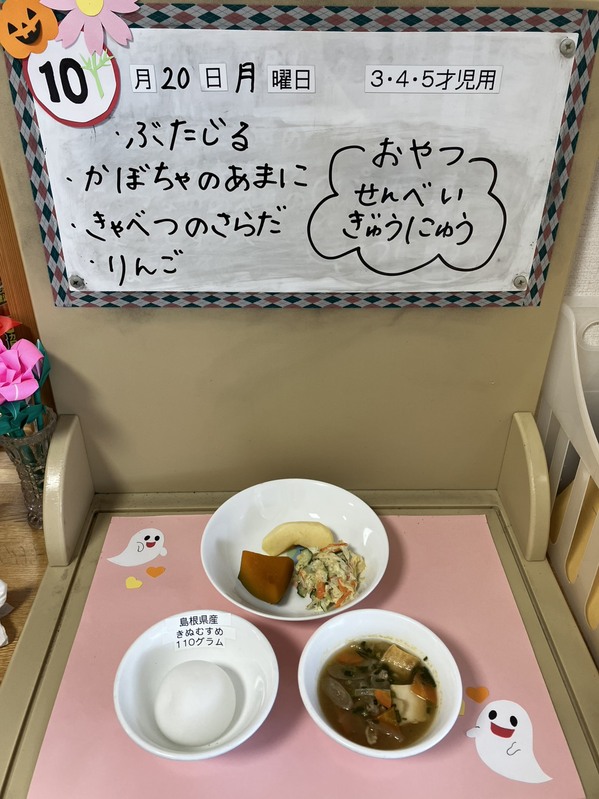 10月20日月曜日 3・4・5才児用
・ぶたじる
・かぼちゃのあまに
・きゃべつのさらだ
・りんご
おやつ
せんべい
ぎゅうにゅう
島根県産
きぬむすめ
110グラム